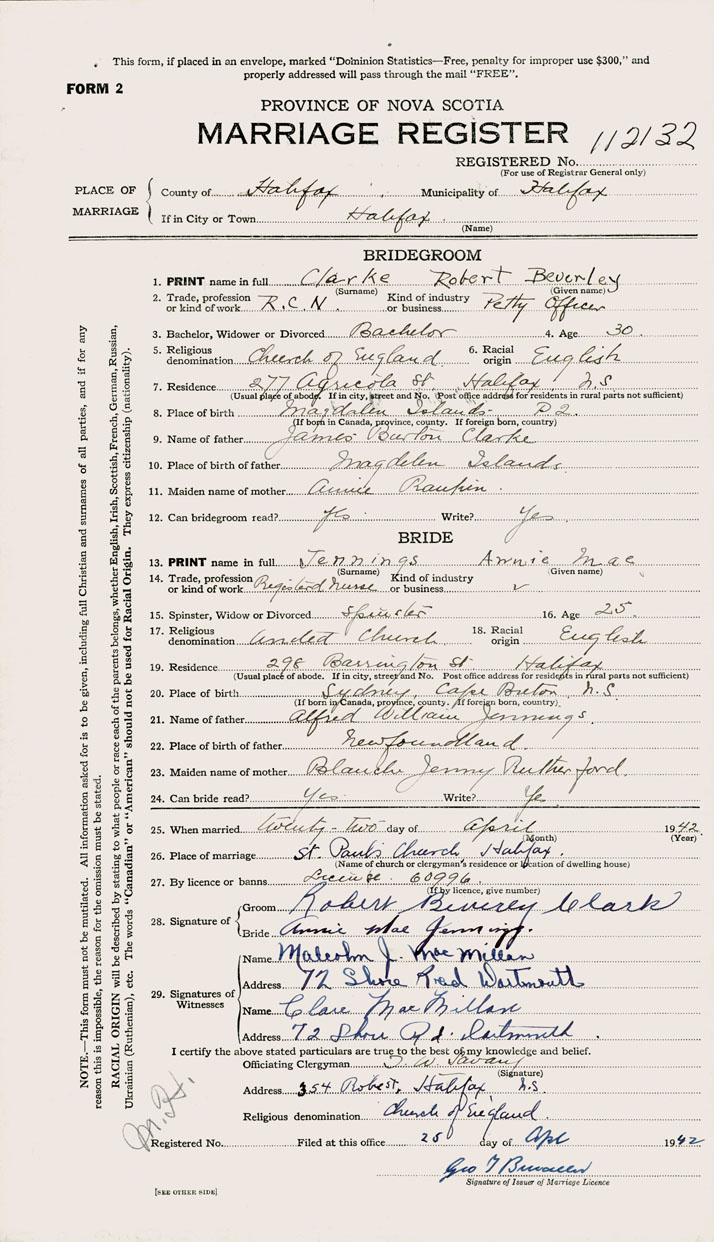 This form, if placed in an envelope, marked "Dominion Statistics—Free, penalty for improper use $300," and
properly addressed will pass through the mail "FREE".
FORM 2
PROVINCE OF NOVA SCOTIA
MARRIAGE REGISTER 112132
REGISTERED No.
(For use of Registrar General only)
PLACE OF MARRIAGE
County of Halifax Municipality of Halifax
If in City or Town Halifax
(Name)
BRIDEGROOM
1. PRINT name in full Clarke Robert Beverley
(Surname) (Given name)
2. Trade, profession or kind of work R.C.N. Kind of industry or business Petty Officer
3. Bachelor, Widower or Divorced Bachelor 4. Age 30
5. Religious denomination Church of England 6. Racial origin English
7. Residence 277 Agricola St Halifax N.S.
(Usual place of abode. If in city, street and No. Post office address for residents in rural parts not sufficient)
8. Place of birth Magdalen Islands P.Q.
(If born in Canada, province, county. If foreign born, country)
9. Name of father James Burton Clarke
10. Place of birth of father Magdelen Islands
11. Maiden name of mother Annie Rankin
12. Can bridegroom read? Yes Write? Yes
BRIDE
13. PRINT name in full Jennings Annie Mae
(Surname) (Given name)
14. Trade, profession or kind of work Registerd Nurse Kind of industry or business
15. Spinster, Widow or Divorced Spinster 16. Age 25
17. Religious denomination United Church 18. Racial origin English
19. Residence 298 Barrington St Halifax
(Usual place of abode. If in city, street and No. Post office address for residents in rural parts not sufficient)
20. Place of birth Sydney, Cape Breton N.S
(If born in Canada, province, county. If foreign born, country)
21. Name of father Alfred William Jennings
22. Place of birth of father Newfoundland
23. Maiden name of mother Blanche Jenny Rutherford
24. Can bride read? Yes Write? Yes
25. When married twenty-two day of April 1942
(Month) (Year)
26. Place of marriage St. Pauls Church Halifax.
(Name of church or clergyman's residence or location of dwelling house)
27. By licence or banns License 60996
(If by licence, give number)
28. Signature of
Groom Robert Beverley Clark
Bride Annie Mae Jennings.
29. Signatures of Witnesses
Name Malcolm J. MacMillan
Address 72 Shore Road Dartmouth
Name Clare MacMillan
Address 72 Shore Rd. Dartmouth
I certify the above stated particulars are true to the best of my knowledge and belief.
Officiating Clergyman T. W. Savary
(Signature)
Address 354 Robie St, Halifax N.S.
Religious denomination Church of England
Registered No. Filed at this office 25 day of Apl 1942
Signature of Issuer of Marriage Licence
[SEE OTHER SIDE]
NOTE.—This form must not be mutilated. All information asked for is to be given, including full Christian and surnames of all parties, and if for any
reason this is impossible, the reason for the omission must be stated.
RACIAL ORIGIN will be described by stating to what people or race each of the parents belongs, whether English, Irish, Scottish, French, German, Russian,
Ukrainian (Ruthenian), etc. The words "Canadian" or "American" should not be used for Racial Origin. They express citizenship (nationality).